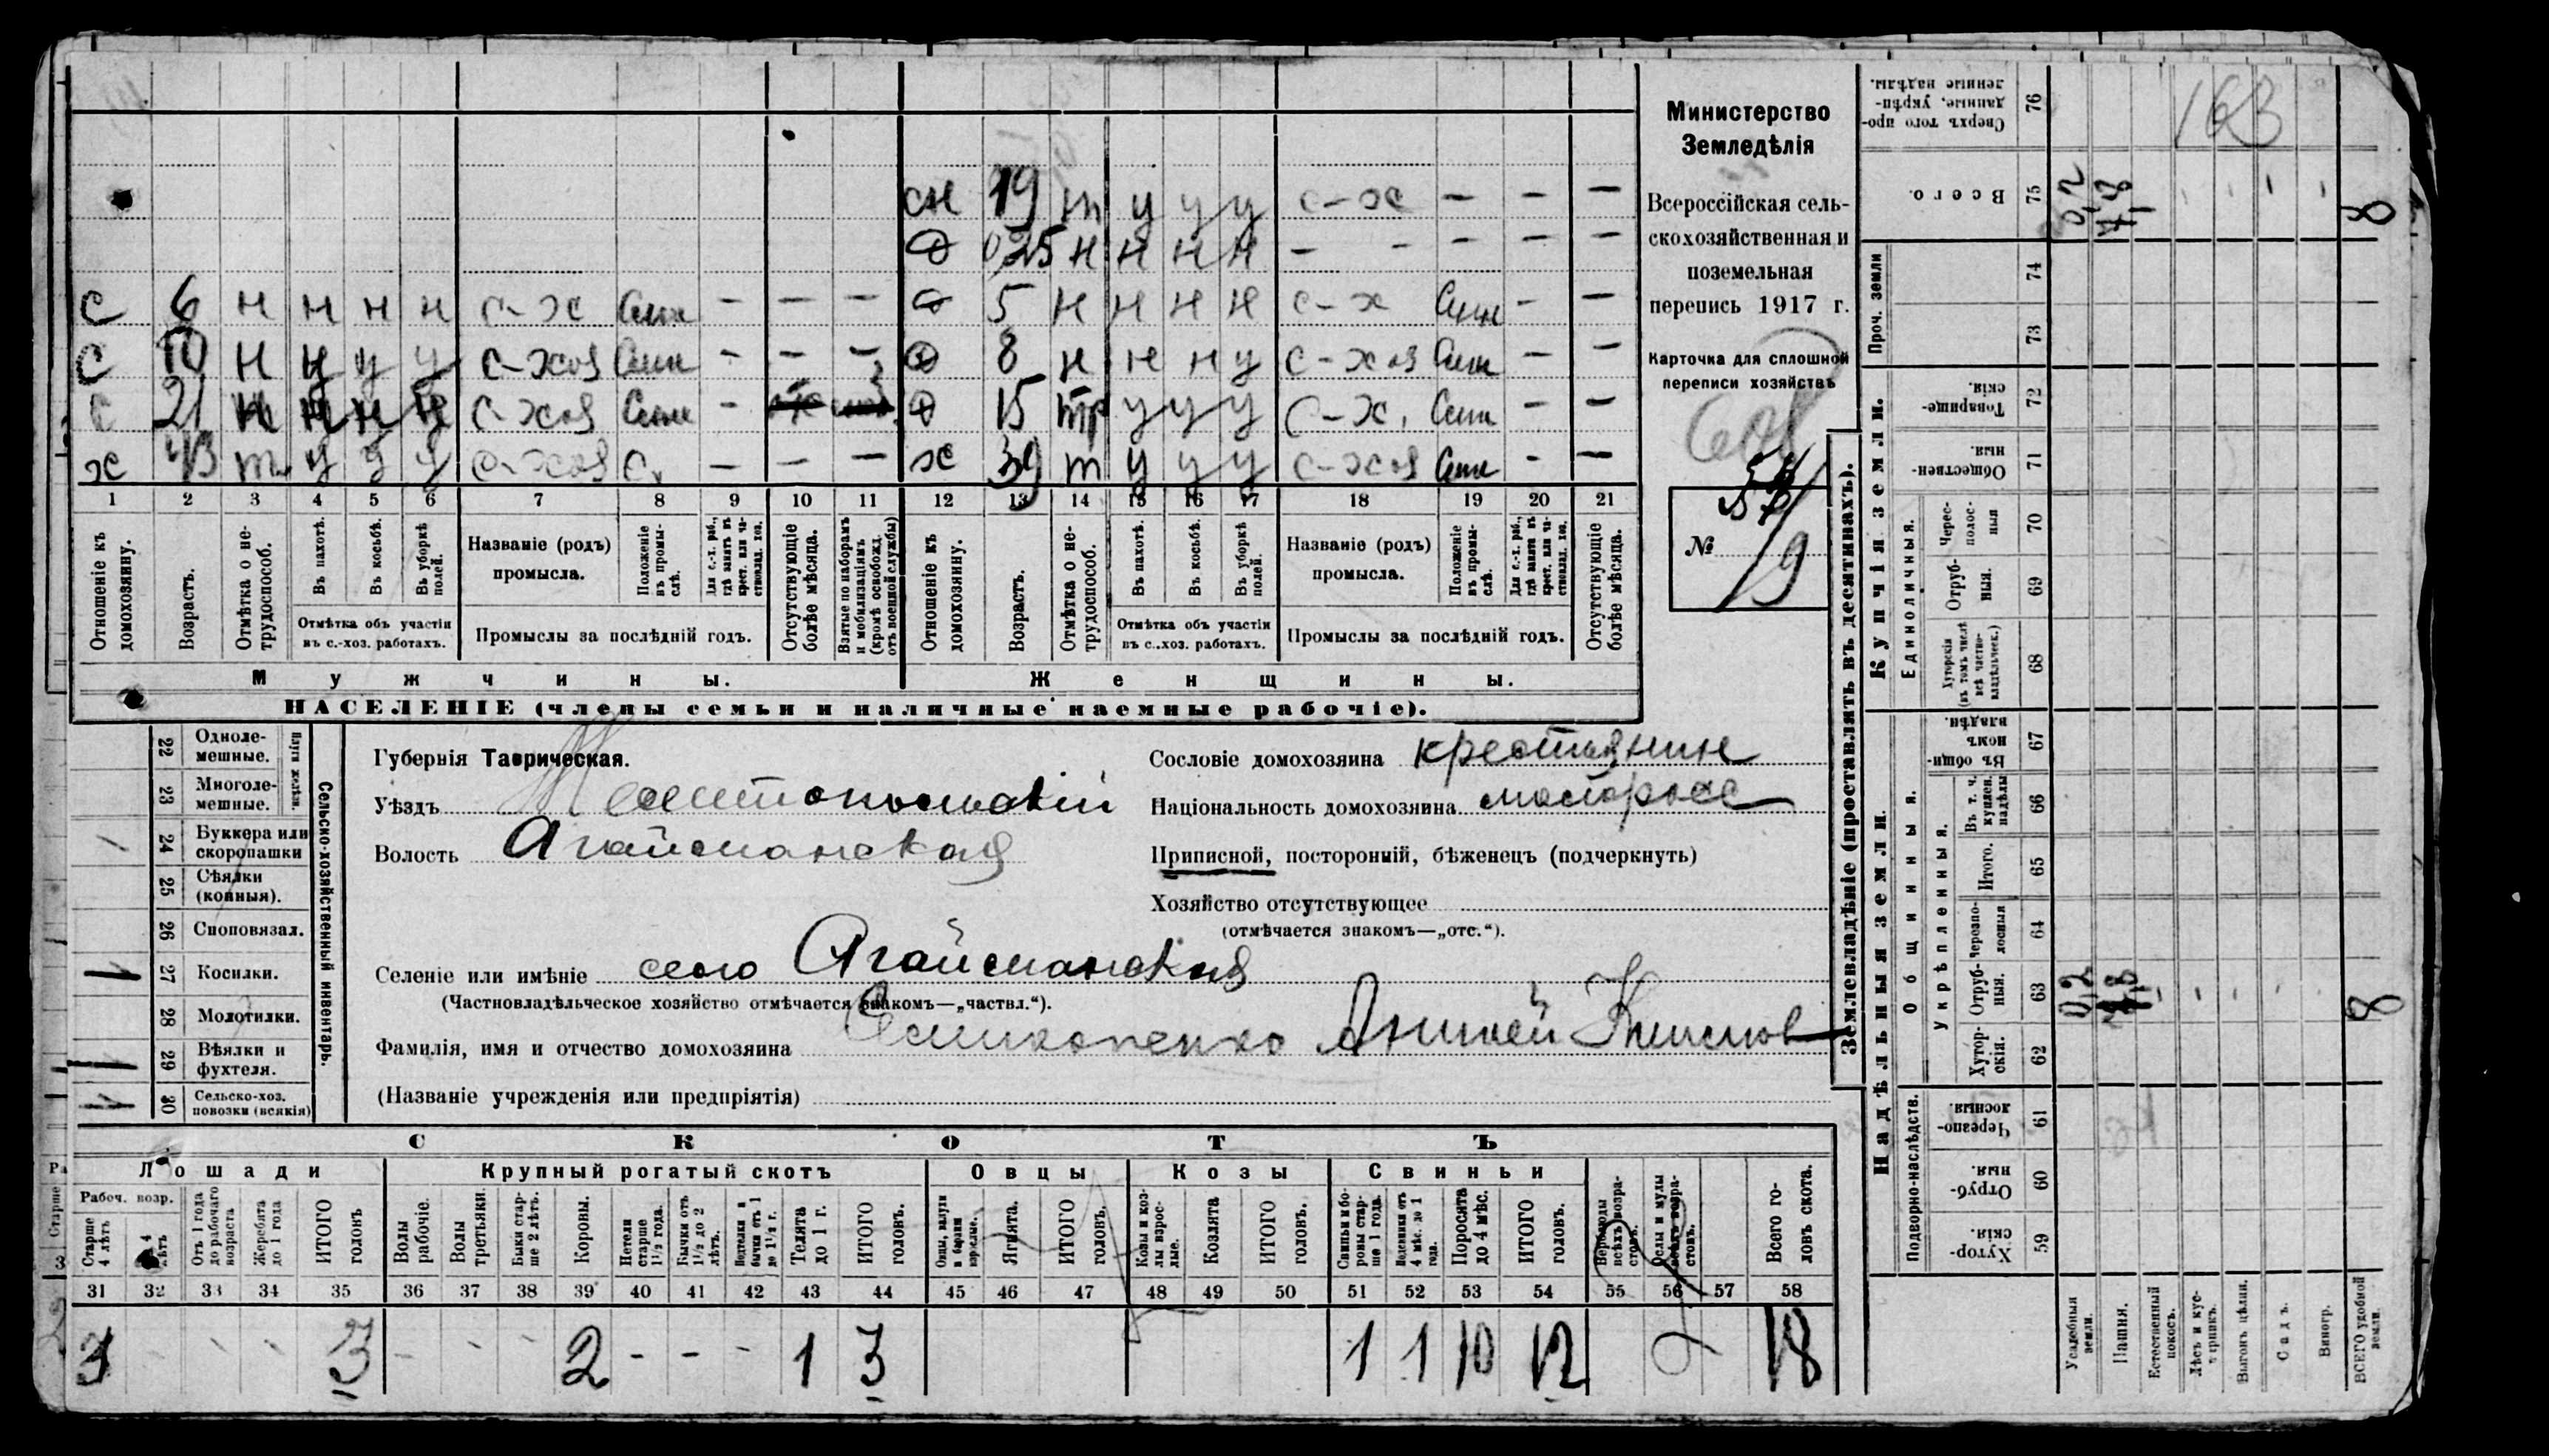 Министерство
Земледѣлія
Всероссійская сель-
скохозяйственная и
поземельная
перепись 1917 г.
Карточка для сплошной
переписи хозяйствъ
№ 19
сн 19 т у у у с-х — — —
д 0,25 н н н н — — — — —
с 6 н н н н с-х Сын — — — д 5 н н н н с-х Сын — —
с 10 н у у у с-хоз Сын — — — д 8 н н н у с-хоз Сын — —
с 21 н н н н с-хоз Сын — д 15 тр у у у с-х. Сын — —
х 43 т у у у с-хоз С. — — — ж 39 т у у у с-хоз Сын — —
1 2 3 4 5 6 7 8 9 10 11 12 13 14 15 16 17 18 19 20 21
Отношеніе къ домохозяину.
Возрастъ.
Отмѣтка о не-трудоспособ.
Въ пахотѣ.
Въ косьбѣ.
Въ уборкѣ полей.
Отмѣтка объ участіи
въ с.-хоз. работахъ.
Названіе (родъ)
промысла.
Положеніе въ промы-слѣ.
Промыслы за послѣдній годъ.
Отсутствующіе болѣе мѣсяца.
Взятые по наборамъ и мобилизаціямъ (кромѣ освобожд. отъ военной службы)
Отношеніе къ домохозяину.
Возрастъ.
Отмѣтка о не-трудоспособ.
Въ пахотѣ.
Въ косьбѣ.
Въ уборкѣ полей.
Отмѣтка объ участіи
въ с.-хоз. работахъ.
Названіе (родъ)
промысла.
Положеніе въ промы-слѣ.
Промыслы за послѣдній годъ.
Отсутствующіе болѣе мѣсяца.
Мужчины. Женщины.
НАСЕЛЕНІЕ (члены семьи и наличные наемные рабочіе).
Сельско-хозяйственный инвентарь.
22 Однолемешные.
23 Многолемешные.
24 Буккера или скоропашки
25 Сѣялки (конныя).
26 Сноповязал.
27 Косилки.
28 Молотилки.
29 Вѣялки и фухтеля.
30 Сельско-хоз. повозки (всякія)
Губернія Таврическая.
Уѣздъ Мелитопольскій
Волость Агайманская
Селеніе или имѣніе село Агайманская
(Частновладѣльческое хозяйство отмѣчается знакомъ—„частвл.“).
Фамилія, имя и отчество домохозяина
(Названіе учрежденія или предпріятія)
Сословіе домохозяина крестьянин
Національность домохозяина малоросс
Приписной, посторонній, бѣженецъ (подчеркнуть)
Хозяйство отсутствующее
(отмѣчается знакомъ—„отс.“).
СКОТЪ
Лошади Крупный рогатый скотъ Овцы Козы Свиньи
Рабоч. возр.
Старше 4 лѣтъ
Отъ 1 года до рабочаго возраста
Жеребята до 1 года
ИТОГО головъ
Волы рабочіе.
Волы третьяки.
Быки стар-ше 2 лѣтъ.
Коровы.
Нетели старше 1½ года.
Бычки отъ 1½ до 2 лѣтъ.
Телята до 1 г.
ИТОГО головъ.
Ягнята.
ИТОГО головъ.
Козы и коз-лы взрос-лые.
Козлята
ИТОГО головъ.
Свиньи и бо-ровы стар-ше 1 года.
Подсвинки отъ 4 мѣс. до 1 года.
Поросята до 4 мѣс.
ИТОГО головъ.
Верблюды всѣхъ возра-стовъ.
Ослы и мулы всѣхъ возра-стовъ.
Всего го-ловъ скота.
31 32 33 34 35 36 37 38 39 40 41 42 43 44 45 46 47 48 49 50 51 52 53 54 55 56 57 58
3 3 2 - - - 1 3 1 1 10 12 18
Землевладѣніе (проставлять въ десятинахъ).
163
Сверхъ того про-данные, укрѣп-ленные надѣлы. 76
Всего. 75 0,2 7,8 8
Проч. земли 74
73
Купчія земли.
Товарище-скія. 72
Обществен-ныя. 71
Единоличныя.
Черес-полос-ныя 70
Отруб-ныя. 69
Хуторскія (въ томъ числѣ всѣ частно-владѣльческ.) 68
Надѣльныя земли.
Общинныя.
Въ общи-номъ владѣн. 67
Въ т. ч. куплен. надѣлы 66
Укрѣпленныя.
Итого. 65
Черезпо-лосныя 64
Отруб-ныя. 63 0,2 7,8 8
Хутор-скія. 62
Подворно-наслѣдств.
Черезпо-лосныя 61
Отруб-ныя 60
Хутор-скія. 59
Усадебныя земли.
Пашня.
Естественный покосъ.
Лѣсъ и кус-тарникъ.
Выгонъ цѣлин.
Садъ.
Виногр.
ВСЕГО удобной земли.